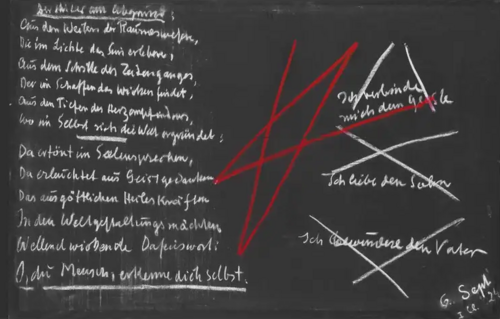 Der Hüter am Abgrund:
Aus den Weiten der Raumeswesen,
Die im Lichte des Seins erleben,
Aus dem Schritte des Zeitenganges,
Der im Schaffen das Wirken findet,
Aus den Tiefen des Herzempfindens,
Wo im Selbst sich die Welt ergründet:
Da ertönt im Seelensprechen,
Da erleuchtet aus Geistgedanken
Das aus göttlichen Heileskräften
In den Weltgestaltungsmächten
Wellend wirkende Daseinswort:
O, du Mensch, erkenne dich selbst.
Ich verbinde
mich dem Geiste
Ich liebe den Sohn
Ich bewundere den Vater
6. Sept